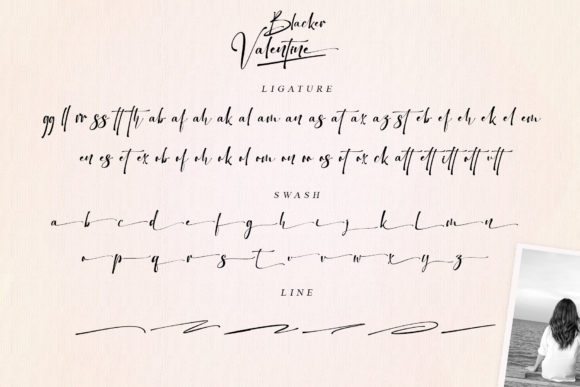 Blacker
Valentine
LIGATURE
gg ll rr ss tt th ab af ah ak al am an as at ax az st eb ef eh ek el em
en es et ex ob of oh ok ol om on or os ot ox ck att ett itt ott utt
SWASH
a b c d e f g h i j k l m n
o p q r s t u v w x y z
LINE